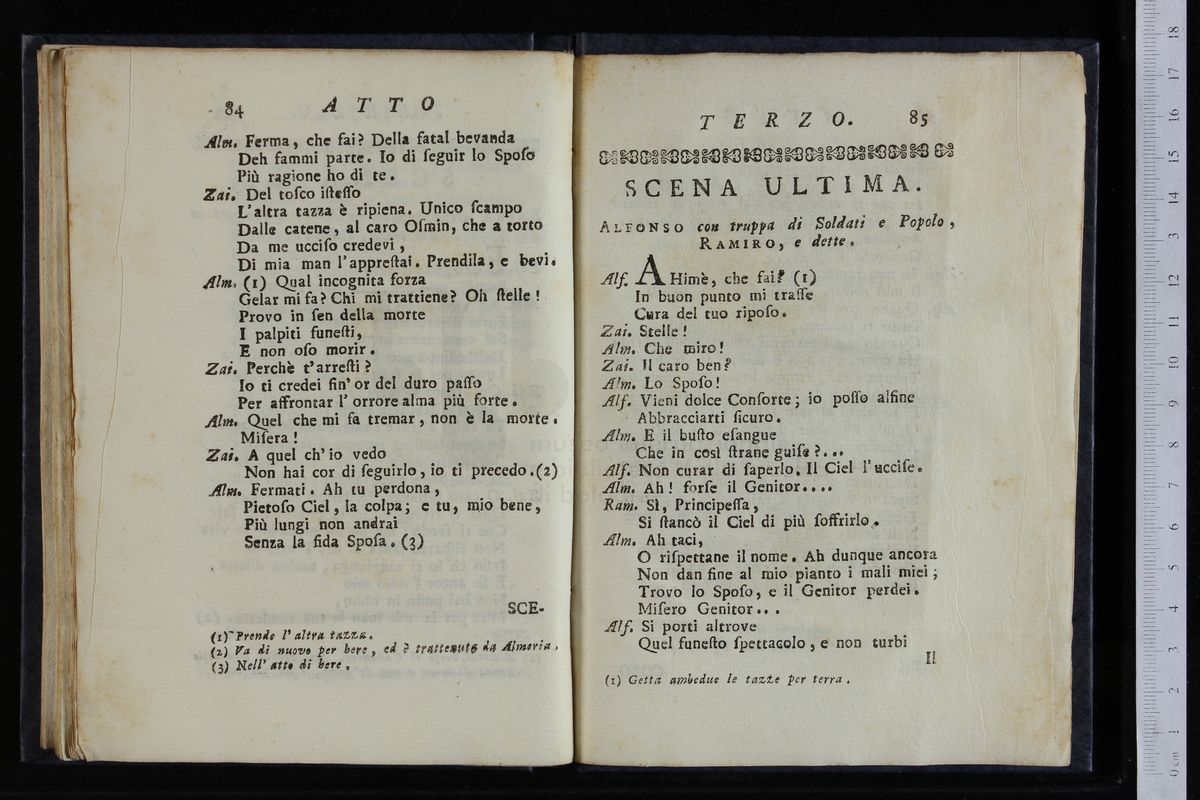 84 ATTO
Alm. Ferma, che fai? Della fatal bevanda
Deh fammi parte. Io di ſeguir lo Spoſo
Più ragione ho di te.
Zai. Del toſco iſteſſo
L'altra tazza è ripiena. Unico ſcampo
Dalle catene, al caro Oſmin, che a torto
Da me ucciſo credevi,
Di mia man l'appreſtai. Prendila, e bevi.
Alm. (1) Qual incognita forza
Gelar mi fa? Chi mi trattiene? Oh ſtelle!
Provo in ſen della morte
I palpiti funeſti,
E non oſo morir.
Zai. Perchè t'arreſti?
Io ti credei ſin' or del duro paſſo
Per affrontar l' orrore alma più forte.
Alm. Quel che mi fa tremar, non è la morte.
Miſera!
Zai. A quel ch' io vedo
Non hai cor di ſeguirlo, io ti precedo.(2)
Alm. Fermati. Ah tu perdona,
Pietoſo Ciel, la colpa; e tu, mio bene,
Più lungi non andrai
Senza la fida Spoſa. (3)
SCE-
(1) Prende l' altra tazza.
(2) Va di nuovo per bere, ed è trattenuta da Almeria.
(3) Nell' atto di bere.
TERZO. 85
SCENA ULTIMA.
ALFONSO con truppa di Soldati e Popolo,
RAMIRO, e dette.
Alf. AHimè, che fai? (1)
In buon punto mi traſſe
Cura del tuo ripoſo.
Zai. Stelle!
Alm. Che miro!
Zai. Il caro ben?
Alm. Lo Spoſo!
Alf. Vieni dolce Conſorte; io poſſo alfine
Abbracciarti ſicuro.
Alm. E il buſto eſangue
Che in così ſtrane guiſe?...
Alf. Non curar di ſaperlo. Il Ciel l'ucciſe.
Alm. Ah! forſe il Genitor....
Ram. Sì, Principeſſa,
Si ſtancò il Ciel di più ſoffrirlo.
Alm. Ah taci,
O riſpettane il nome. Ah dunque ancora
Non dan fine al mio pianto i mali miei;
Trovo lo Spoſo, e il Genitor perdei.
Miſero Genitor...
Alf. Si porti altrove
Quel funeſto ſpettacolo, e non turbi
Il
(1) Getta ambedue le tazze per terra.
0 cm 1 2 3 4 5 6 7 8 9 10 11 12 13 14 15 16 17 18